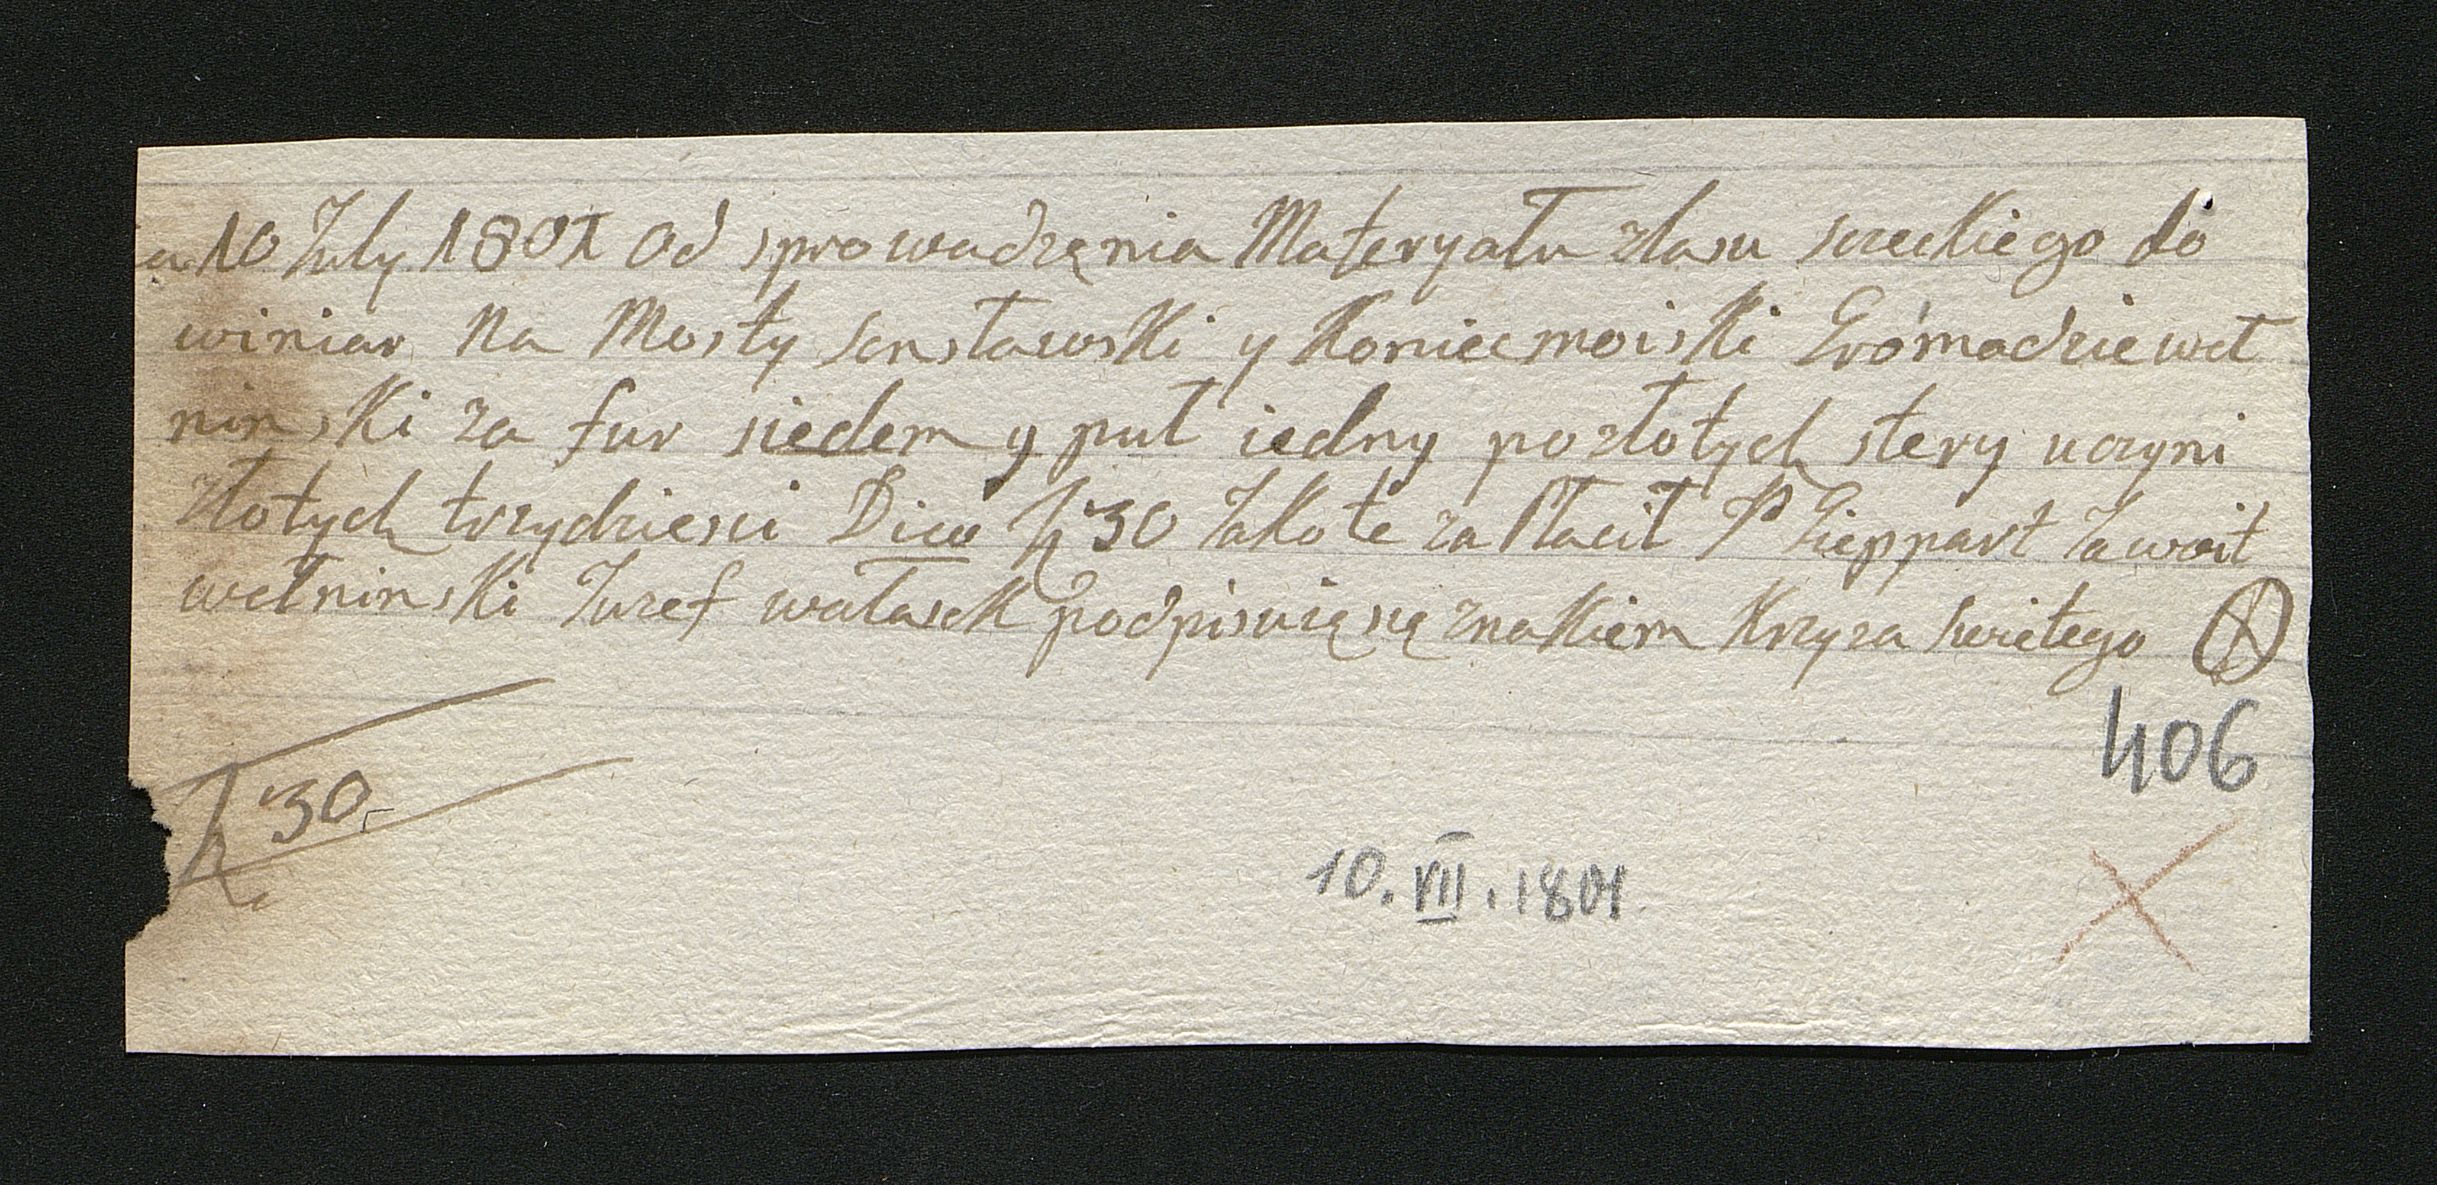 a 10 July 1801 od sprowadzęnia Materyału zlasu sreckiego do
winiar Na Mosty Senstawski y Koniecmoiski Grómadzie weł
ninski za fur siedem y puł iedny pozłotych stery uczyni
złotych trzydziesci Dico f 30 Jako te za Płacił P Gieppart Ja woit
wełninski Juzef wałasek podpisuię się znakiem Krzyza Swietego
f 30
406
10. VII. 1801